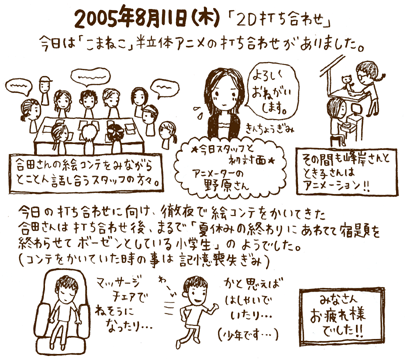 2005年8月11日(木)「2D打ち合わせ」
今日は「こまねこ」半立体アニメの打ち合わせがありました。
合田さんの絵コンテをみながら
とことん話し合うスタッフの方々。
よろしく
おねがい
します。
きんちょうぎみ
*今日スタッフと
初対面*
アニメーターの
野原さん
その間も峰岸さんと
ときるさんは
アニメーション!!
今日の打ち合わせに向け、徹夜で絵コンテをかいてきた
合田さんは打ち合わせ後、まるで「夏休みの終わりにあわてて宿題を
終わらせてボーゼンとしている小学生」のようでした。
(コンテをかいていた時の事は記憶喪失ぎみ)
マッサージ
チェアで
ねそうに
なったり…
わ〜
かと思えば
はしゃいで
いたり…
(少年です…)
みなさん
お疲れ様
でした!!